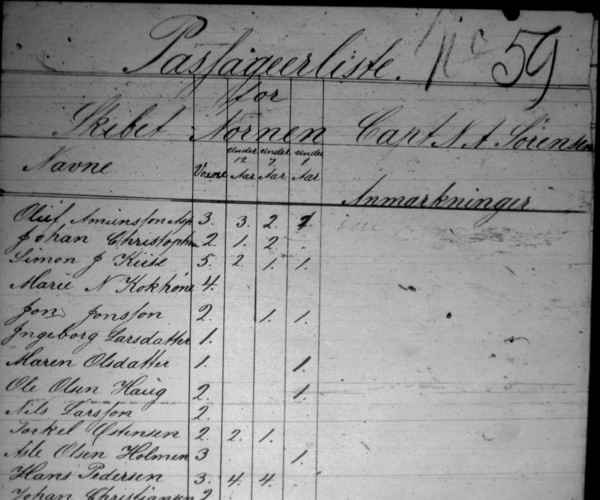 Passageerliste. No 59
for
Skibet Nornen Capt N A Sørensen
Navne Voxne under 12 Aar under 7 Aar under 1 Aar Anmærkninger
Oluf 3. 3. 2. 1
Johan Christophe 2 1. 2.
Simon J 5. 2 1. 1.
Marie N 4.
Jon Jonsson 2. 1. 1.
Ingeborg Larsdatter 1.
Maren Olsdatter 1. 1.
Ole Olsen Haug 2. 1.
Nils Larsson 2.
Torkel Østensen 2. 2. 1.
Asle Olsen Holmen 3 1.
Hans Pedersen 3. 4. 4.
Johan Christiansen 2